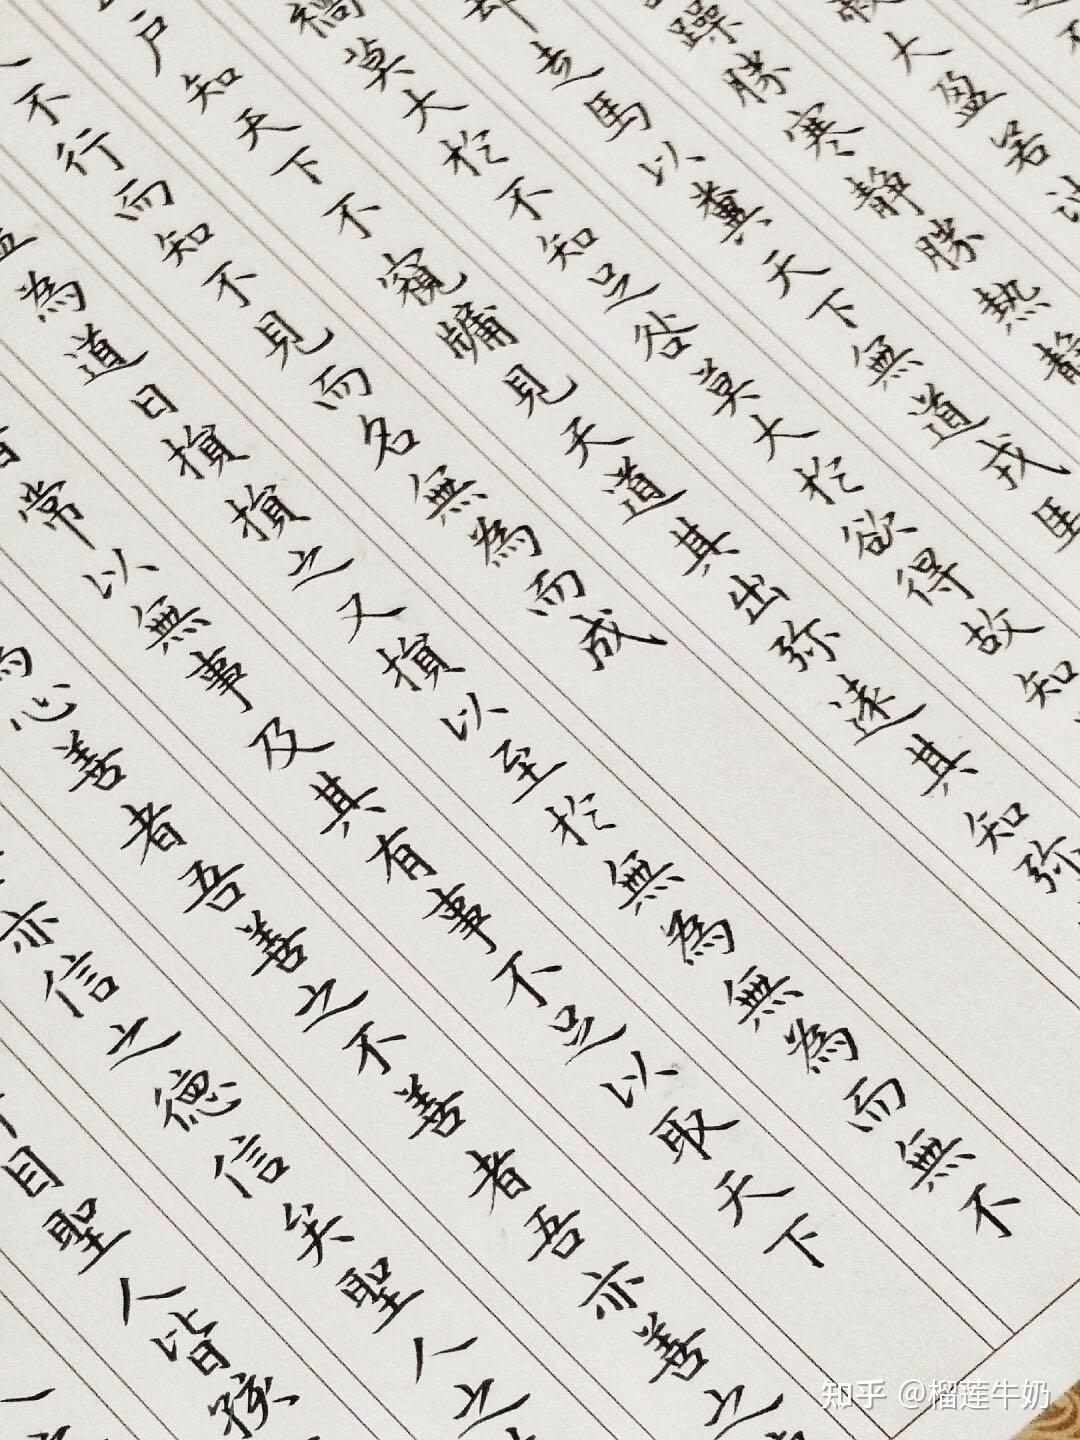 大盈若
躁勝寒靜勝熱
走馬以糞天下無道戎馬
禍莫大於不知足咎莫大於欲得故知
戶知天下不窺牖見天道其出弥遠其知弥
不行而知不見而名無為而成
為道日損損之又損以至於無為無為而無不
常以無事及其有事不足以取天下
心善者吾善之不善者吾亦善之
亦信之德信矣聖人之
目聖人皆孩
知乎 @榴莲牛奶